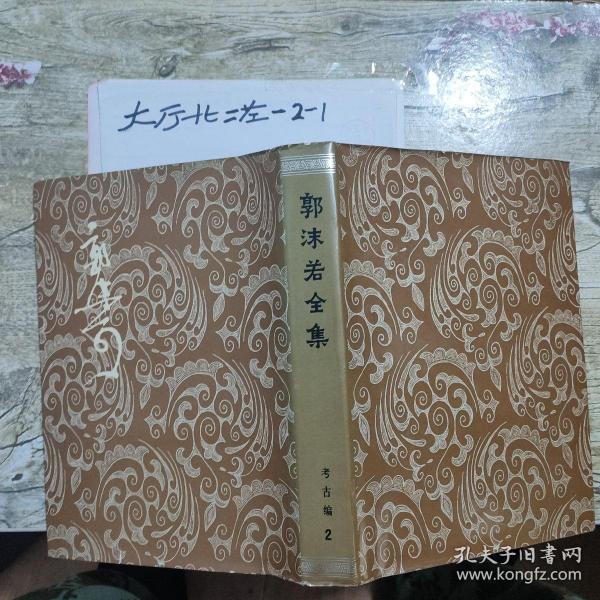 大厅北二左一2-1
郭沫若全集
考古编 2
孔夫子旧书网
www.kongfz.com